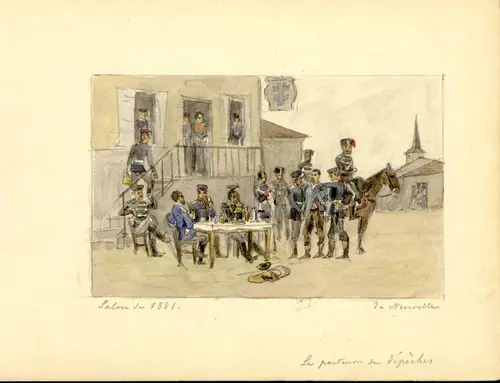 Salon de 1881.
De Neuville
Le porteur de dépêches